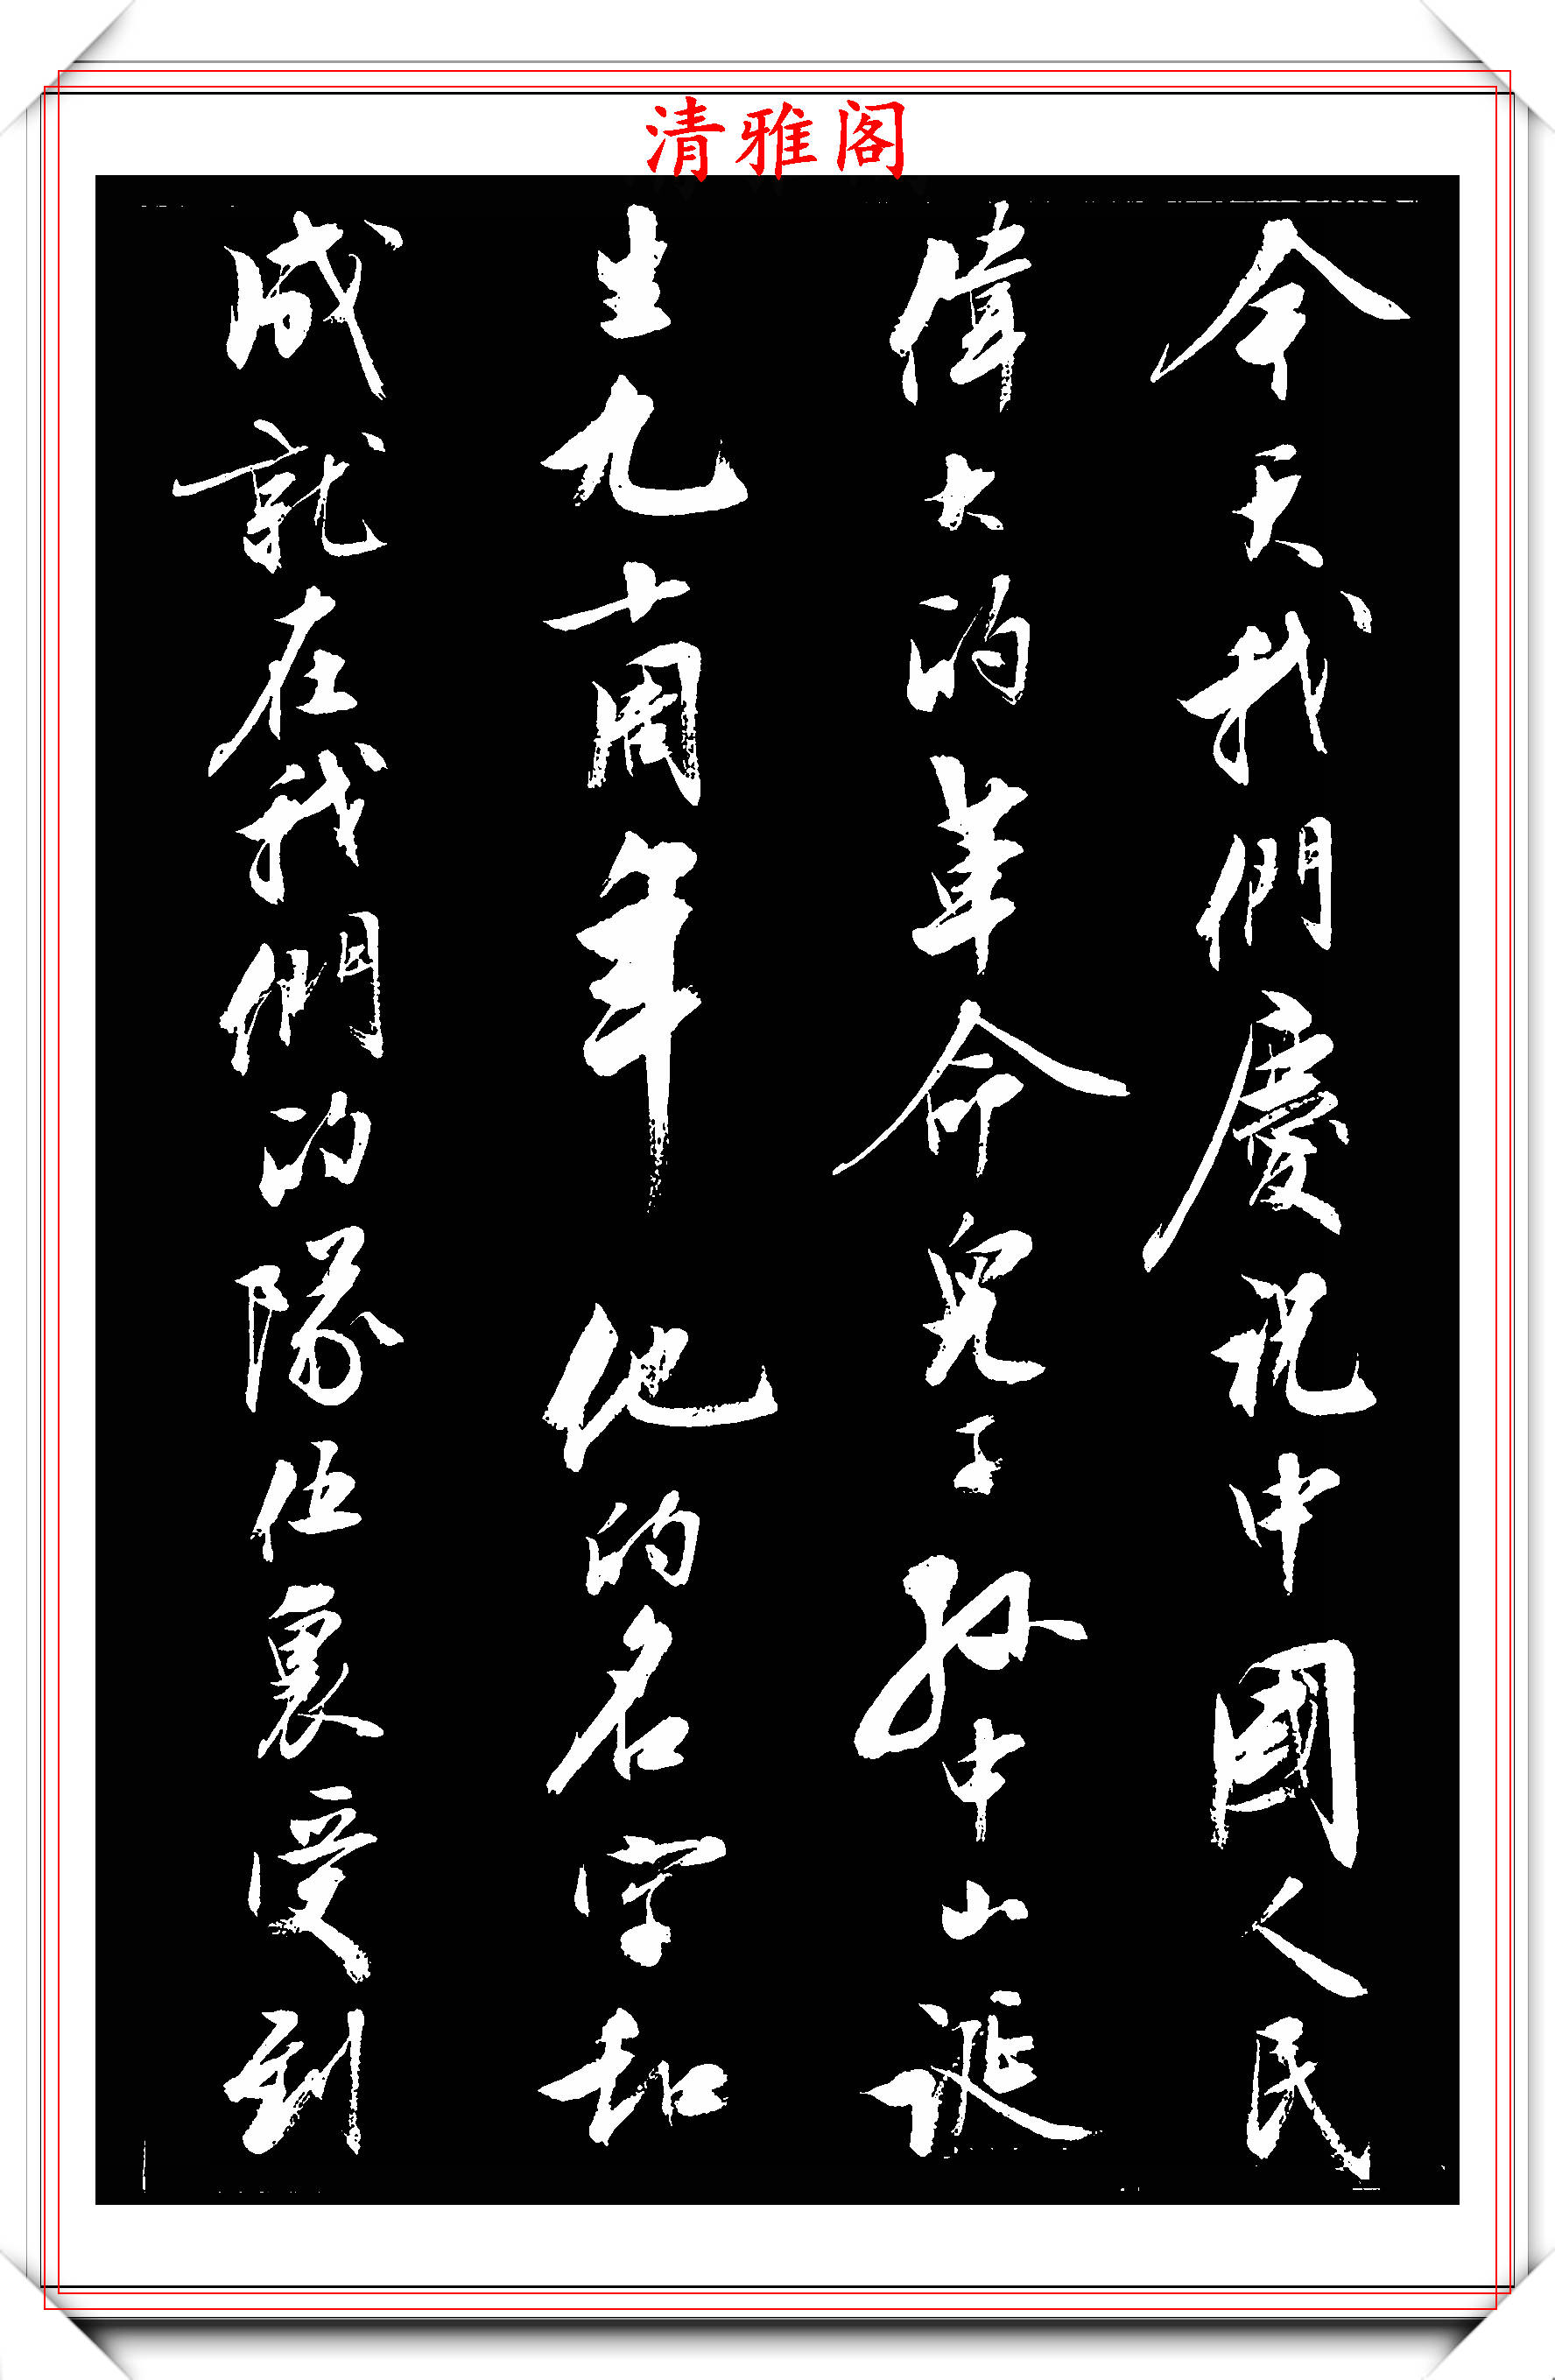 清雅阁
今天我們慶祝中國人民
偉大的革命兒子孫中山誕
生九十周年他的名字和
成就在我們的隊伍裏受到